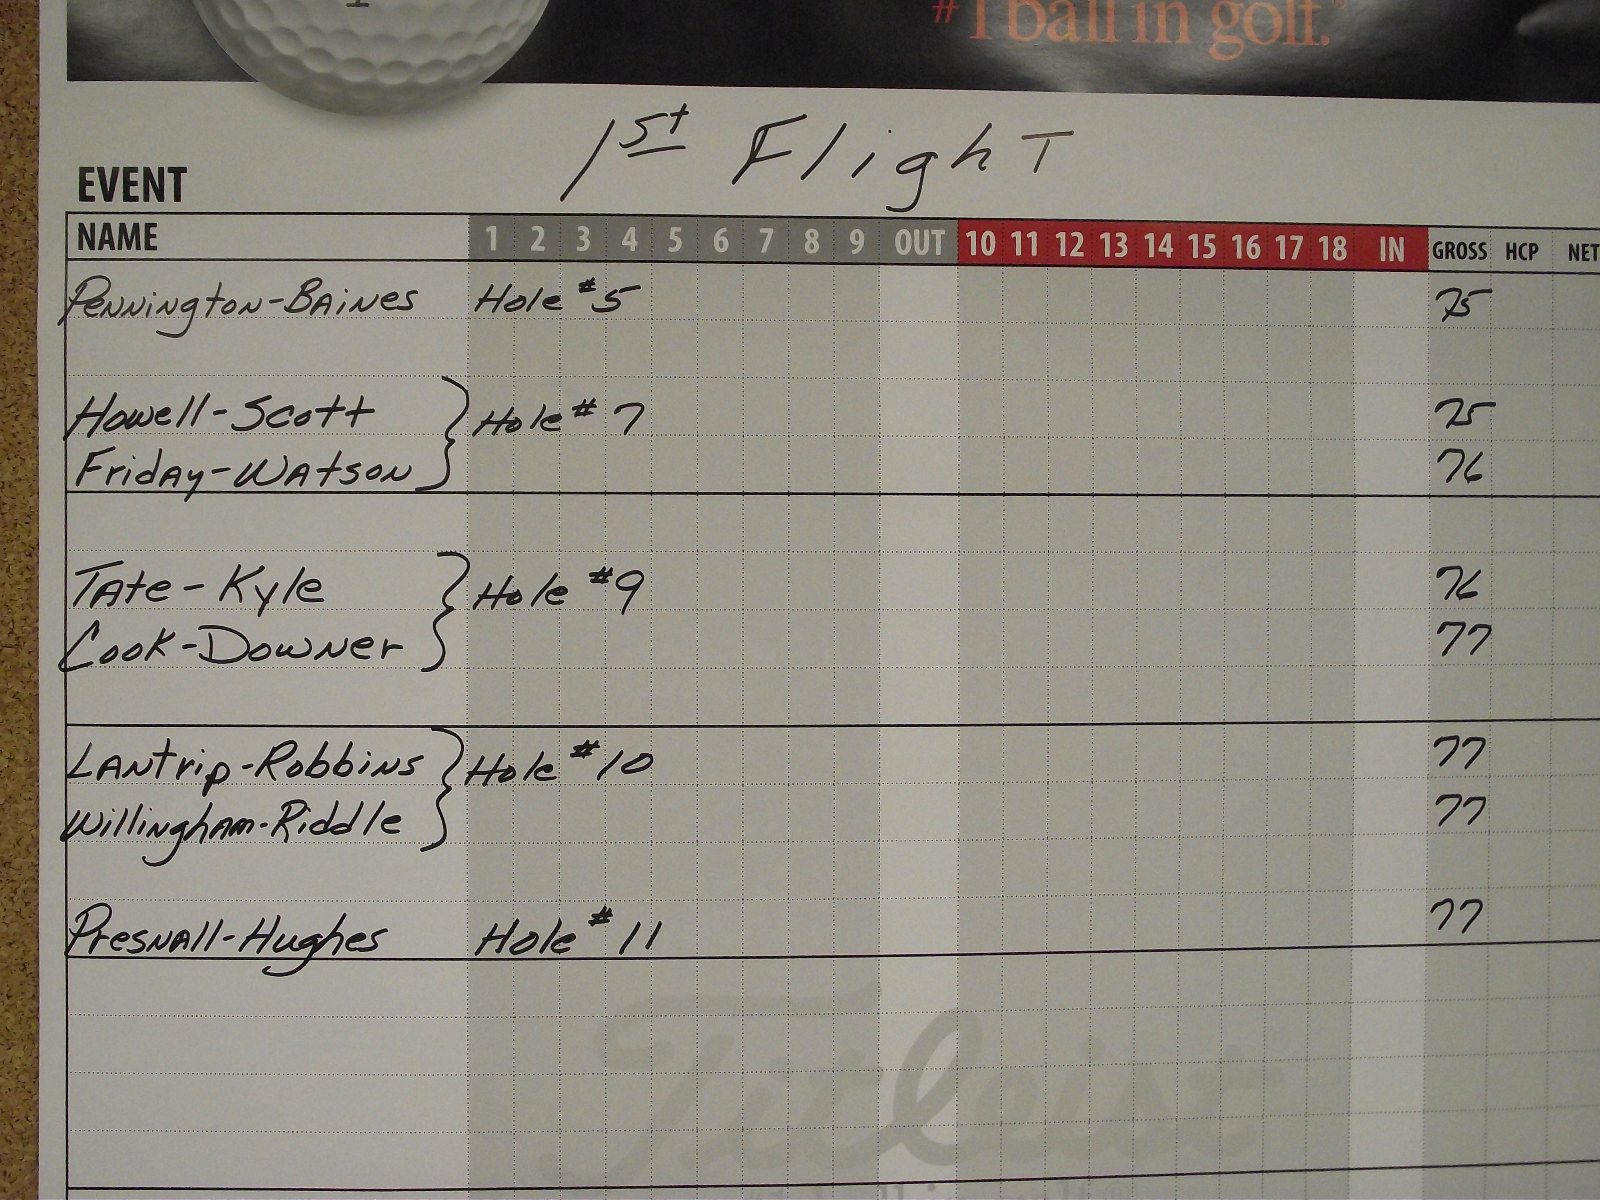 #1 ball in golf.
1st Flight
EVENT
NAME 1 2 3 4 5 6 7 8 9 OUT 10 11 12 13 14 15 16 17 18 IN GROSS HCP NET
Pennington-Baines Hole #5 75
Howell-Scott Hole #7 75
Friday-Watson 76
Tate-Kyle Hole #9 76
Cook-Downer 77
Lantrip-Robbins Hole #10 77
Willingham-Riddle 77
Presnall-Hughes Hole #11 77
Titleist